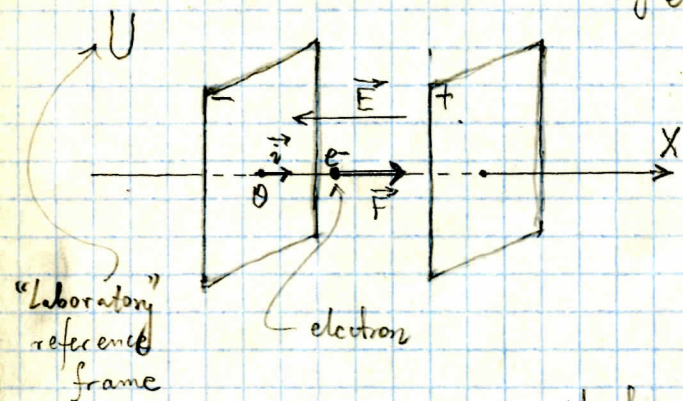 U
E
-
+
i
e-
X
O
F
"Laboratory"
reference
frame
electron